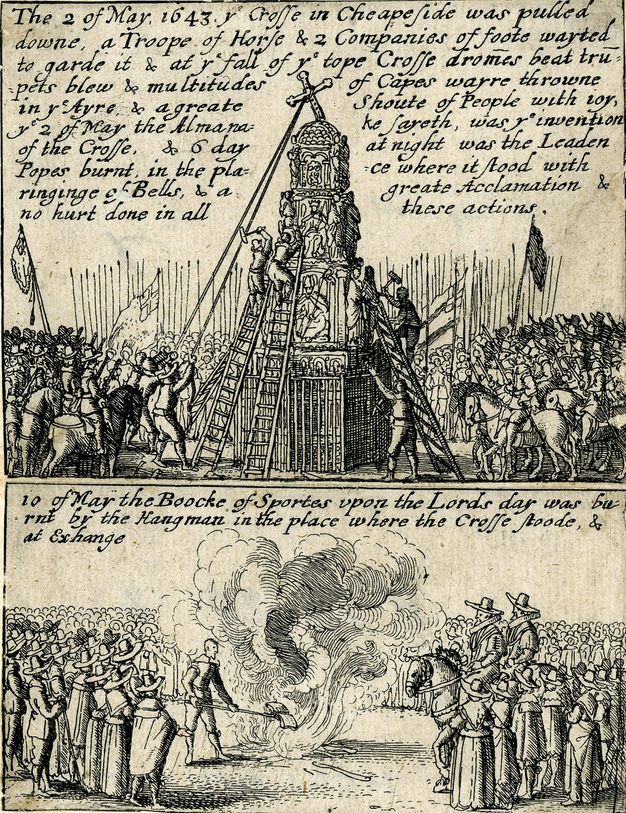 The 2 of May. 1643. yͤ Crosse in Cheapeside was pulled
downe, a Troope of Horse & 2 Companies of foote wayted
to garde it & at yͤ fall of yͤ tope Crosse dromes beat tru-
-pets blew & multitudes of Capes wayre throwne
in yͤ Ayre, & a greate Shoute of People with ioy,
yͤ 2 of May the Almana- ke sayeth, was yͤ invention
of the Crosse, & 6 day at night was the Leaden
Popes burnt, in the pla- -ce where it stood with
ringinge of Bells, & a greate Acclamation &
no hurt done in all these actions.
10 of May the Boocke of Sportes vpon the Lords day was bu-
rnt by the Hangman in the place where the Crosse stoode, &
at Exhange